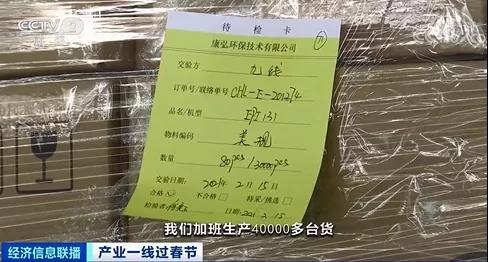 CCTV 2
待检卡
康弘环保技术有限公司
交验方 九线
订单号/联络单号
品名/机型 EPI 131
物料编码 美规
数量 80pcs/3000pcs
交验日期 2021年2月15日
合格 不合格 特采/挑选
检验者: 日期:
我们加班生产40000多台货
经济信息联播 产业一线过春节